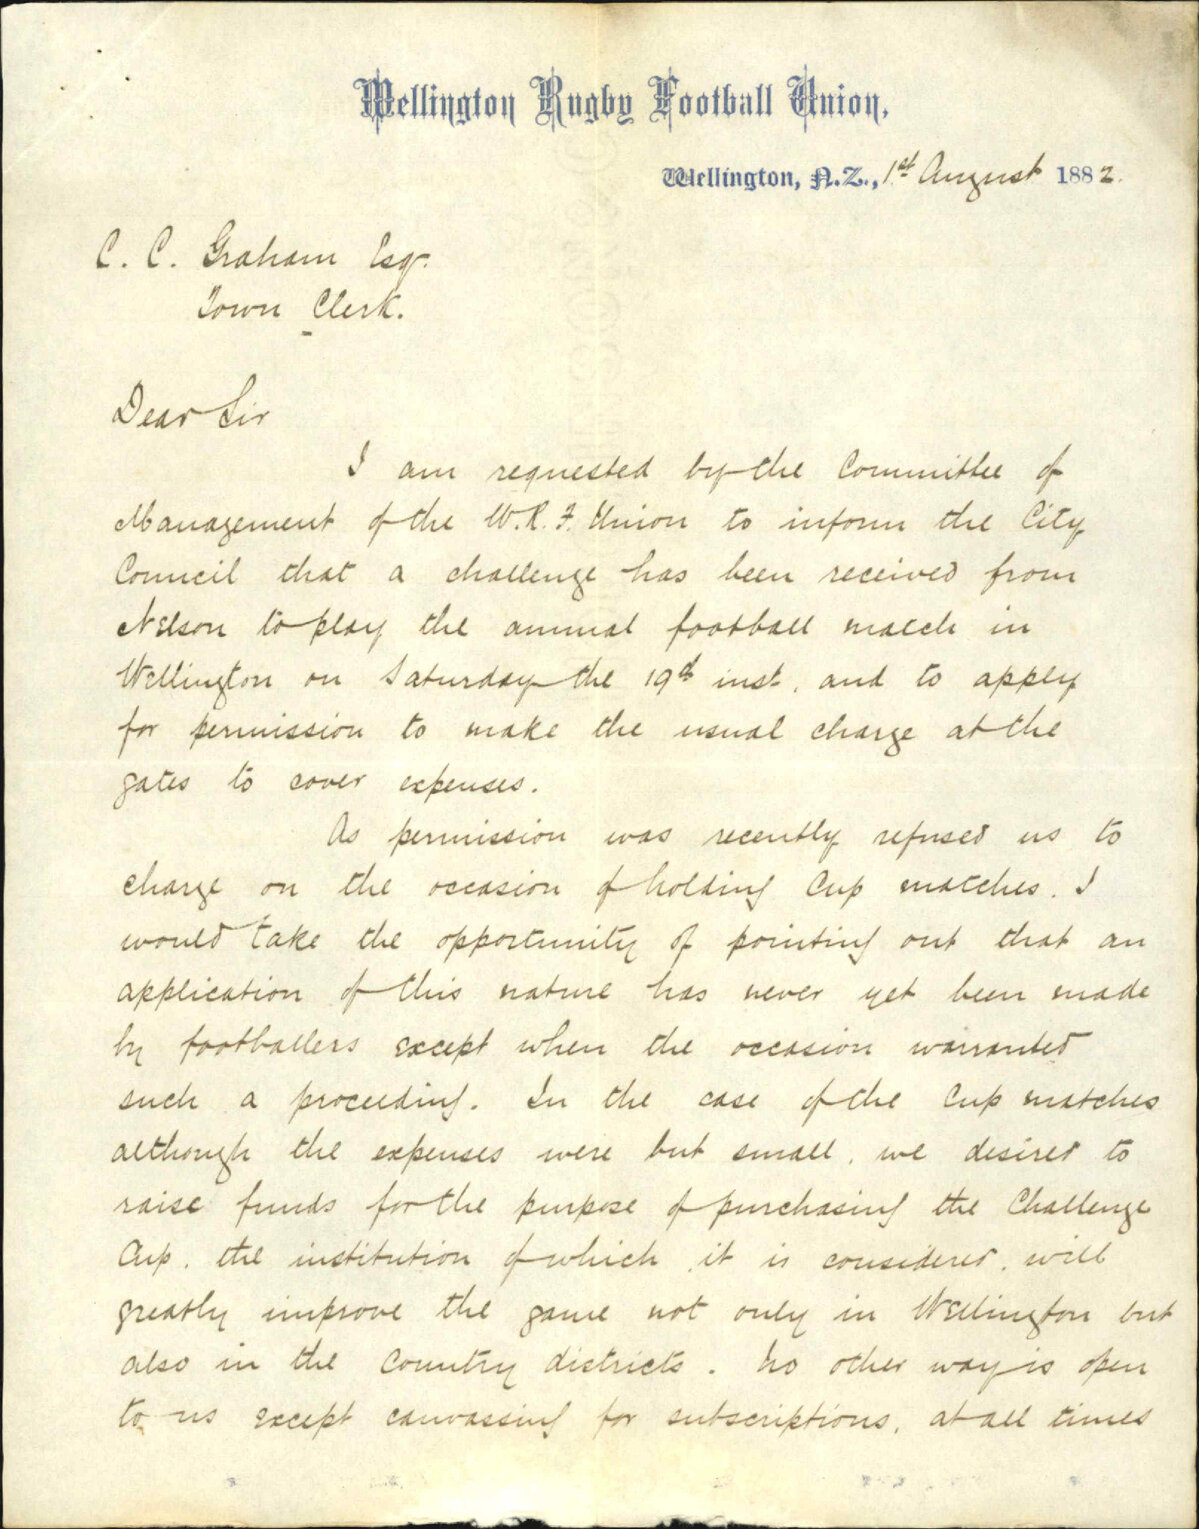 Wellington Rugby Football Union.
Wellington, N.Z., 1st August 1882.
C. C. Graham Esqr.
Town Clerk.
Dear Sir
I am requested by the Committee of
Management of the W.R.F. Union to inform the City
Council that a challenge has been received from
Nelson to play the annual football match in
Wellington on Saturday the 19th inst, and to apply
for permission to make the usual charge at the
gates to cover expenses.
As permission was recently refused us to
charge on the occasion of holding Cup matches. I
would take the opportunity of pointing out that an
application of this nature has never yet been made
by footballers except when the occasion warranted
such a proceeding. In the case of the Cup matches
although the expenses were but small, we desired to
raise funds for the purpose of purchasing the Challenge
Cup, the institution of which, it is considered, will
greatly improve the game not only in Wellington but
also in the Country districts. No other way is open
to us except canvassing for subscriptions, at all times